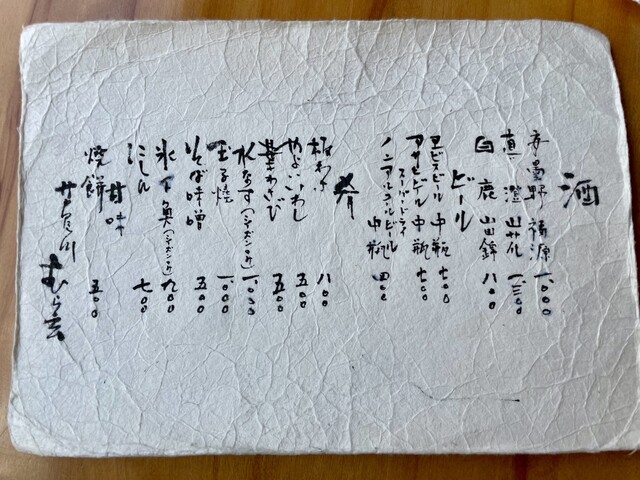 酒
安曇野 福源 一、〇〇〇
真澄 山花 一、三〇〇
白鹿 山田錦 八〇〇
ビール
ヱビスビール 中瓶 七〇〇
アサヒビール 中瓶 七〇〇
スーパードライ
ノンアルコールビール 中瓶 四〇〇
肴
板わさ 八〇〇
やよいいわし 五〇〇
葉わさび 五〇〇
水なす(シーズンのみ) 一、〇〇〇
玉子焼 一、〇〇〇
そば味噌 五〇〇
氷下魚(シーズンのみ) 九〇〇
にしん 七〇〇
甘味
焼餅 五〇〇
芦賀川